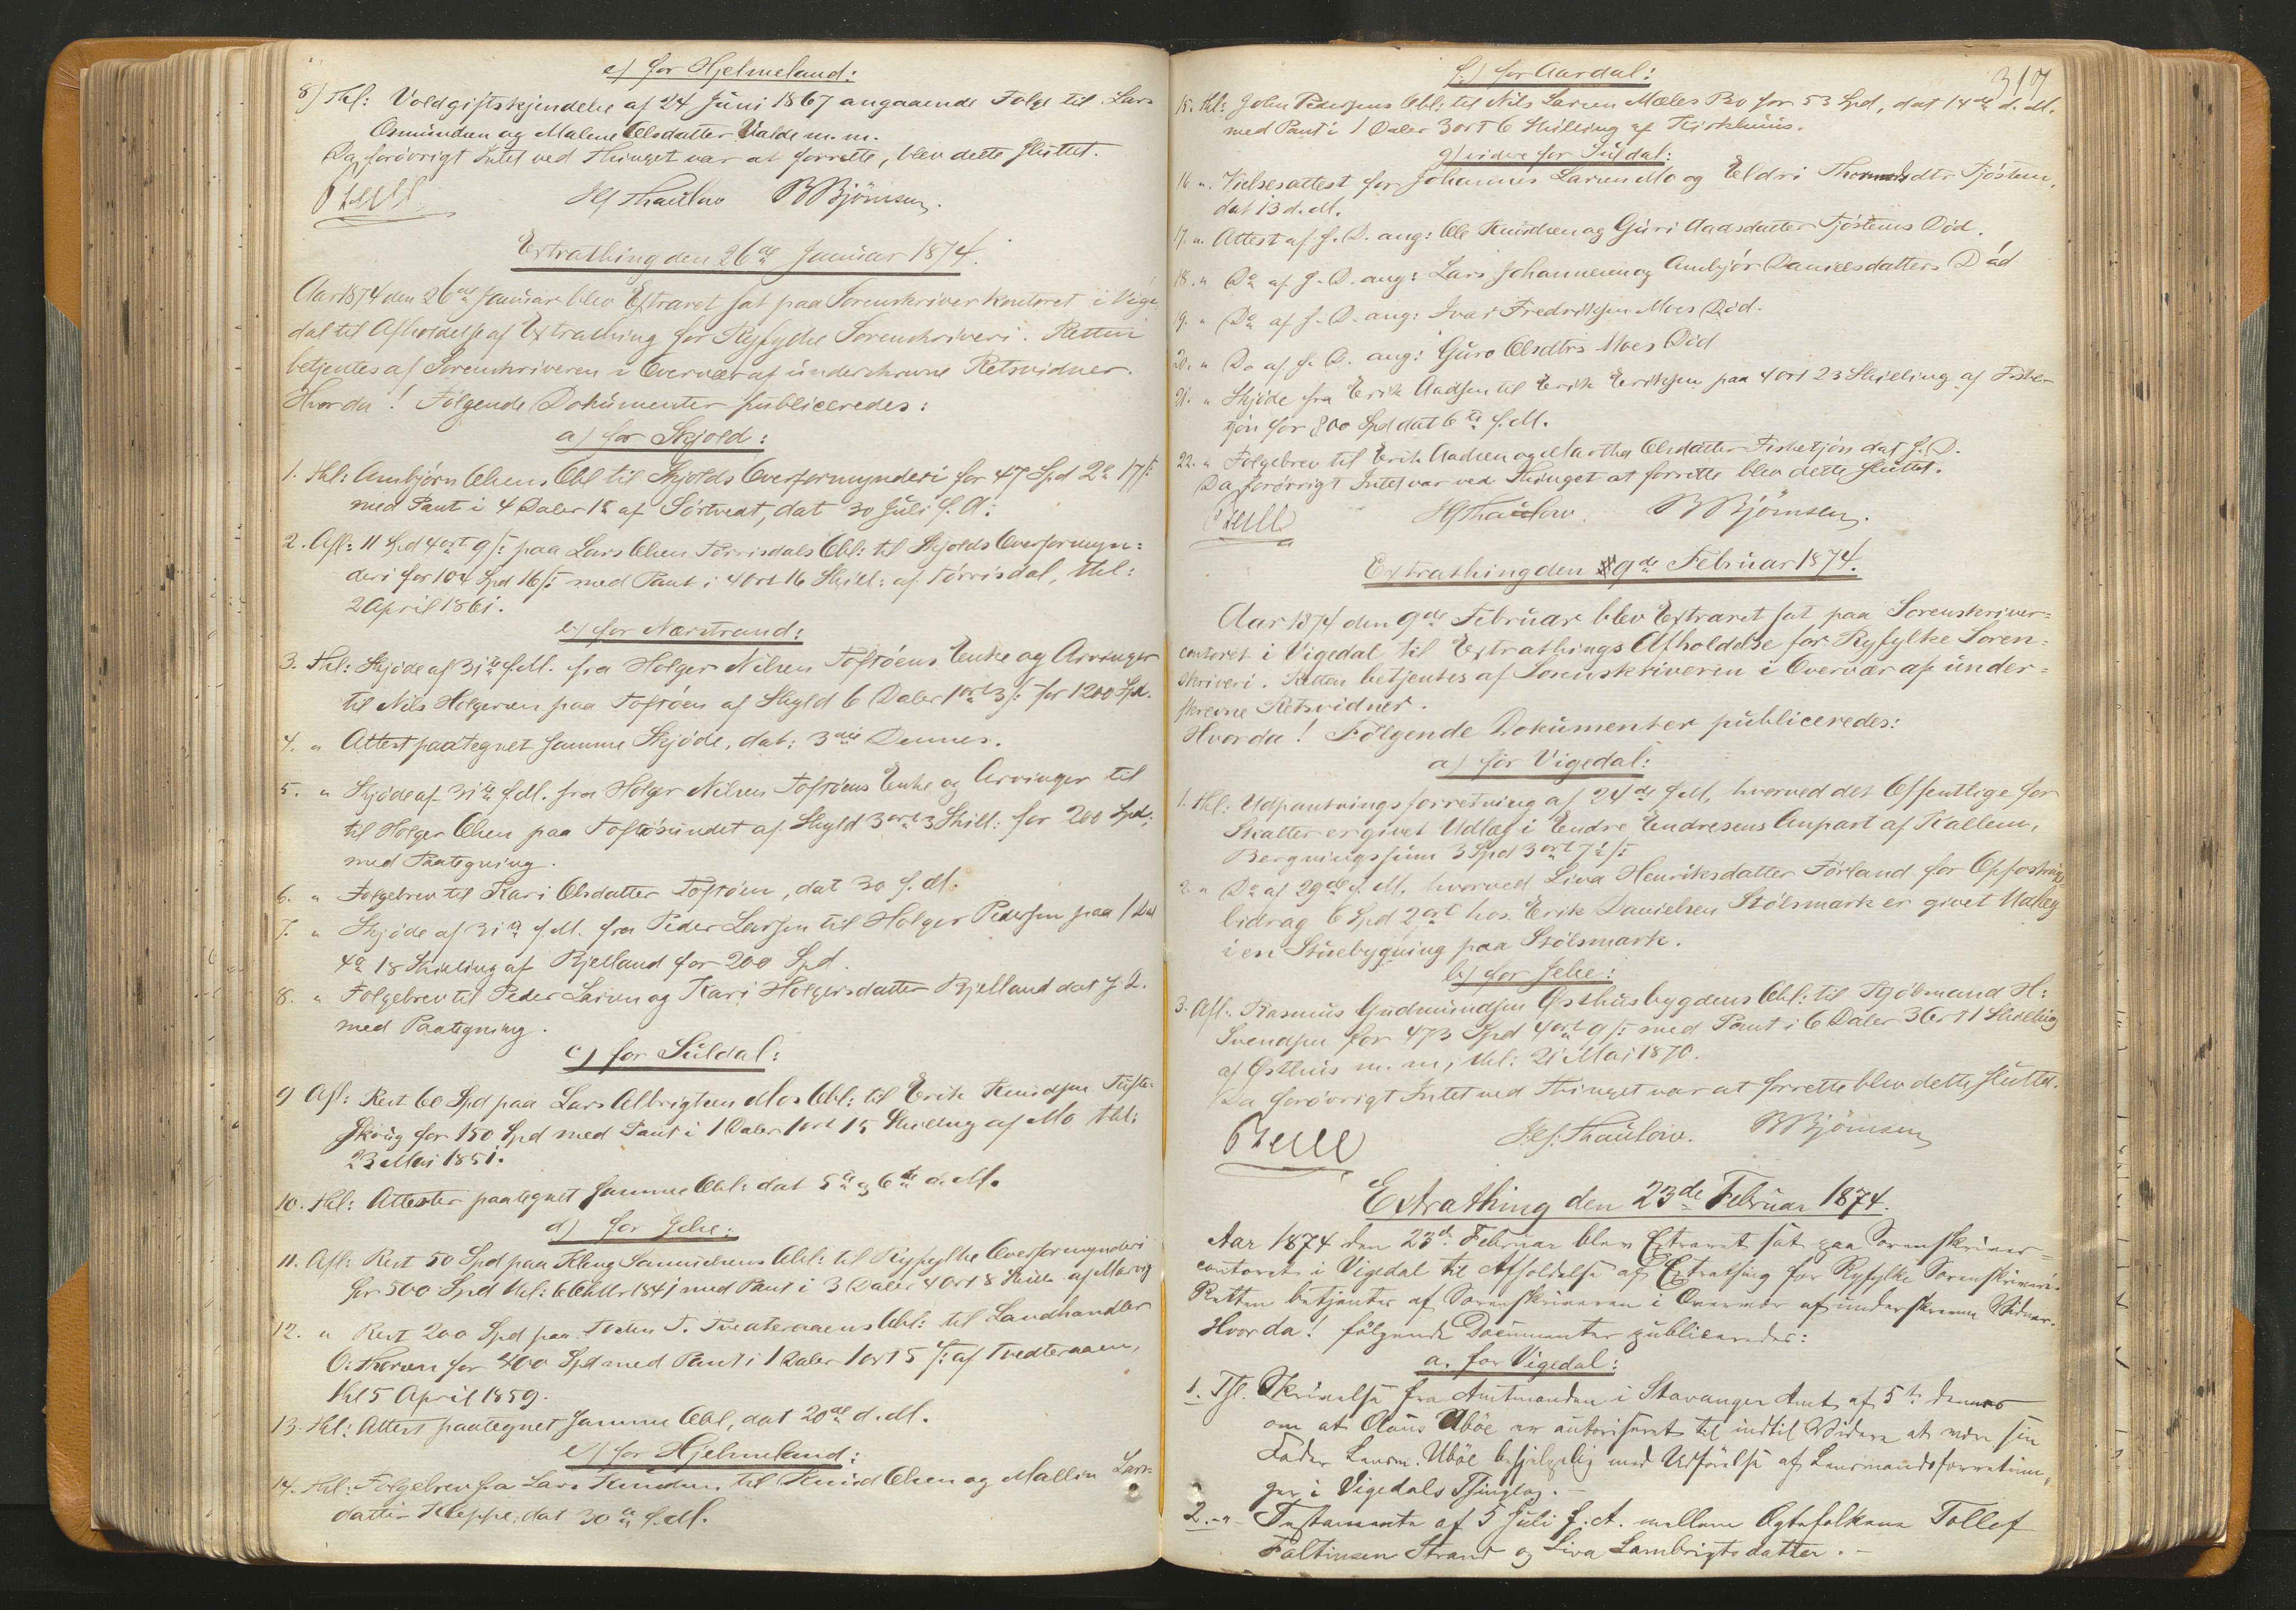 e) for Hjelmeland:
8) Thl: Voldgiftskjendelse af 24 Juni 1867 angaaende Folge til Lars
Osmundsen og Malene Olsdatter Valde m. m.
Da forövrigt Intet ved Thinget var at forrette, blev dette sluttet.
Thaulow BBjörnsen.
Extrathing den 26de Januar 1874.
Aar 1874 den 26de Januar blev Extraret sat paa Sorenskriverkontoret i Vige
dal til Afholdelse af Extrathing for Ryfylke Sorenskriveri. Retten
betjentes af Sorenskriveren i Overvær af underskrevne Retsvidner.
Hvorda! Følgende Dokumenter publiceredes:
a) for Skjold:
1. Thl: Ambjörn Olsens Obl til Skjolds Overformynderi for 47 Spd 2 17 s:
med Pant i 4 Daler 18 af Sörtvedt, dat 30 Juli f. A.
2. Afl: 11 Spd 4 ort 9 s: paa Lars Olsen Törrisdals Obl: til Skjolds Overformyn=
deri for 104 Spd 16 s: med Pant i 4 Ort 16 Skill: af Törrisdal, thl:
2 April 1861.
b) for Nærstrand:
3. Thl: Skjöde af 31te f. M. fra Holger Nilsen Toftöens Enke og Arvinger
til Nils Holgersen paa Toftöen af Skyld 6 Daler 1 ort 3 s: for 1200 Spd.
4. " Attest paategnet samme Skjöde, dat: 3die Dennes.
5. " Skjöde af 31te f. M. fra Holger Nilsen Toftöens Enke og Arvinger til
til Holger Olsen paa Toftösundet af Skyld 3 ort 3 Skill: for 200 Spd;
med Paategning.
6. " Folgebrev til Kari Olsdatter Toftöen, dat 30 f. M.
7. " Skjöde af 31te f. M. fra Peder Larsen til Holger Pedersen paa 1 Dal
4 18 Skilling af Bjelland for 200 Spd.
8. " Folgebrev til Peder Larsen og Kari Holgersdatter Bjelland dat f. D.
med Paategning.
c) for Suldal:
9 Afl: Rest 60 Spd paa Lars Albrigtsen Mos Obl: til Erik Knudsen Tufte=
skoug for 150 Spd med Pant i 1 Daler 1 ort 15 Skilling af Mo thl:
23 Mai 1851.
10. Thl: Attester paategnet samme Obl: dat 5te & 6te d. M.
d) for Jelse:
11. Afl: Rest 50 Spd paa Samuelsens Obl: til Ryfylke Overformynderi
for 500 Spd thl: 6 Oktbr 1841 med Pant i 3 Daler 4 Ort 8 Skill af Marvig
12. " Rest 200 Spd paa Tosten T. Tvedteraaens Obl: til Landhandler
O. Thorsen for 400 Spd med Pant i 1 Daler 1 ort 5 s: af Tvedteraaen,
thl 5 April 1859.
13. Thl: Attest paategnet samme Obl, dat 20de d. M.
e) for Hjelmeland:
14. Thl: Folgebrev fra Lars Knudsen til Knud Olsen og Mallin Lars
datter Kleppe, dat 30te f. M.
317
f.) for Aardal:
15. Thl: John Pedersens Obl: til Nils Larsen Mæles Bo for 53 Spd, dat 14de d. M.
med Pant i 1 Daler 3 ort 6 Skilling af Kirkhuus.
g) videre for Suldal:
16 ". Vielsesattest for Johannes Larsen Mo og Eldri dtr Fjöstem,
dat 13 d. M.
17. ". Attest af f. D. ang: Ole Knudsen og Guri Aadsdatter Fjöstems Död.
18. " Do af f. D. ang: Lars Johannesen og Ambjör Danielsdatters Död
19. " Do af f. D. ang: Ivar Fredriksen Moes Död.
20. " Do af f. D. ang: Guro Olsdtrs Moes Död
21. " Skjöde fra Erik Aadsen til Erik Eriksen paa 4 ort 23 Skilling af Fiske
tjön for 800 Spd dat 6te f. M.
22. " Folgebrev til Erik Aadsen og Martha Olsdatter Fisketjön dat f. D.
Da forövrigt Intet var ved Thinget at forrette blev dette sluttet.
Thaulow. BBjörnsen.
Extrathing den 9de Februar 1874.
Aar 1874 den 9de Februar blev Extraret sat paa Sorenskriver=
contoret i Vigedal til Extrathings Afholdelse for Ryfylke Soren=
skriveri. Retten betjentes af Sorenskriveren i Overvær af under=
skrevne Retsvidner.
Hvorda! Følgende Dokumenter publiceredes:
a) for Vigedal:
1. Thl: Udpantningsforretning af 24de f. M, hvorved det Offentlige for
Skatter er givet Udlæg i Endre Endresens Anpart af Kallem,
Bergningssum 3 Spd 3 ort 7 s:
2. " Do af 29de f. M. hvorved Liva Henriksdatter Førland for Opfostrings
bidrag 6 Spd 2 ort hos Erik Danielsen Stölsmark er givet Udlæg
i en Stuebygning paa Stölsmark.
b) for Jelse:
3. Afl: Rasmus Gudmundsen Østhusbygdens Obl: til Kjöbmand H:
Svendsen for 473 Spd 4 ort 9 s: med Pant i 6 Daler 3 Ort 1 Skilling
af Østhus m. m, thl: 21 Mai 1870.
Da forövrigt Intet ved Thinget var at forrette blev dette sluttet.
Thaulow. BBjörnsen
Extrathing den 23de Februar 1874.
Aar 1874 den 23de Februar blev Extraret sat paa Sorenskriver=
contoret i Vigedal til Afholdelse af Extrathing for Ryfylke Sorenskriveri.
Retten betjentes af Sorenskriveren i Overvær af underskrevne Vidner.
Hvorda! følgende Documenter publiceredes:
a. for Vigedal:
1. Thl. Skrivelse fra Amtmanden i Stavanger Amt af 5te dennes
om at Olaus Ubøe er autoriseret til indtil Videre at være sin
Fader Lensm. Ubøe behjelpelig med Udførelse af Lensmandsforretnin,
ger i Vigedals Thinglag. -
2. -"- Testamente af 5 Juli f. A. mellem Ægtefolkene Tollef
Faltinsen Strand og Liva Lambrigtsdatter. -